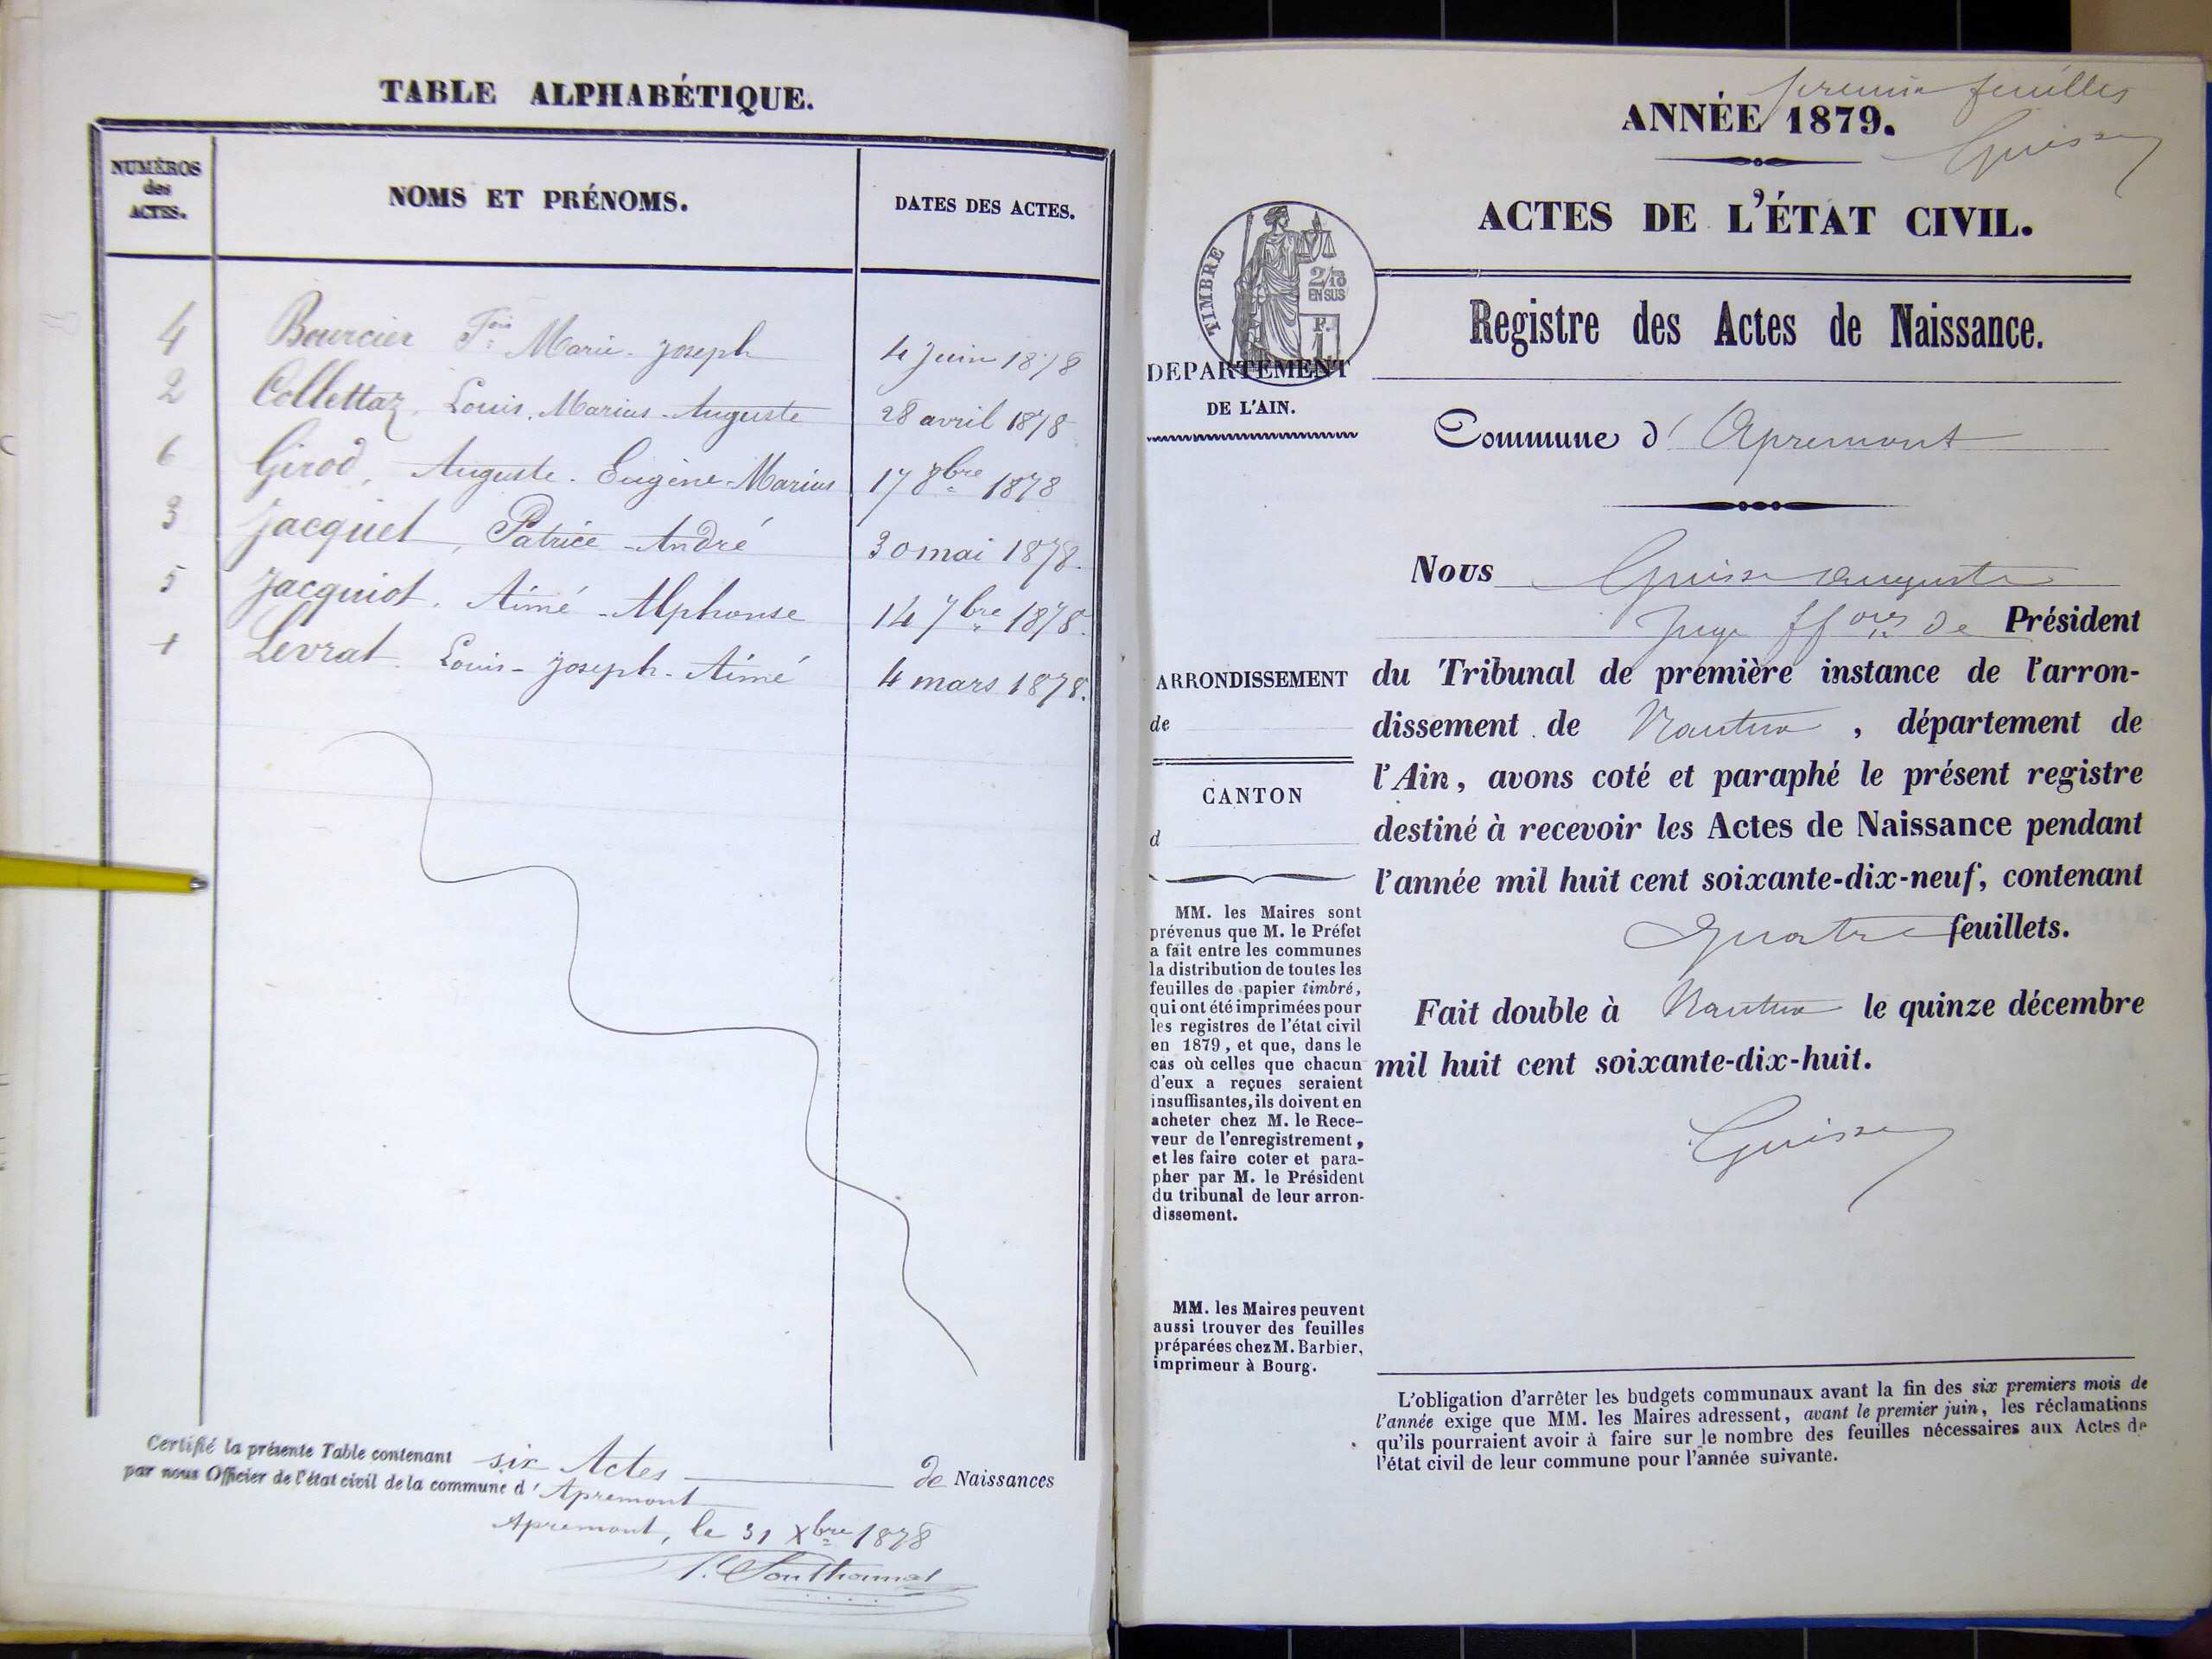 TABLE ALPHABÉTIQUE.
NUMÉROS
des
ACTES.
NOMS ET PRÉNOMS.
DATES DES ACTES.
4 Bourcier Fois Marie-Joseph 4 Juin 1878
2 Collettaz, Louis, Marius-Auguste 28 avril 1878
6 Girod, Auguste. Eugène-Marius 17 8bre 1878
3 Jacquet, Patrice-André 30 mai 1878.
5 Jacquiot. Aimé-Alphonse 14 7bre 1878.
1 Levrat. Louis-Joseph-Aimé 4 mars 1878.
Certifié la présente Table contenant six Actes de Naissances
par nous Officier de l'état civil de la commune d'Apremont
Apremont, le 31 Xbre 1878
premier feuillet
ANNÉE 1879.
Guisse
ACTES DE L'ÉTAT CIVIL.
TIMBRE
2/10
EN SUS
F.
1
Registre des Actes de Naissance.
DEPARTEMENT
DE L'AIN.
Commune d'Apremont
Nous Guisse Auguste
Juge ffons de Président
du Tribunal de première instance de l'arron-
dissement de Nantua, département de
l'Ain, avons coté et paraphé le présent registre
destiné à recevoir les Actes de Naissance pendant
l'année mil huit cent soixante-dix-neuf, contenant
quatre feuillets.
Fait double à Nantua le quinze décembre
mil huit cent soixante-dix-huit.
Guisse
ARRONDISSEMENT
de
CANTON
d
MM. les Maires sont
prévenus que M. le Préfet
a fait entre les communes
la distribution de toutes les
feuilles de papier timbré,
qui ont été imprimées pour
les registres de l'état civil
en 1879, et que, dans le
cas où celles que chacun
d'eux a reçues seraient
insuffisantes, ils doivent en
acheter chez M. le Rece-
veur de l'enregistrement,
et les faire coter et para-
pher par M. le Président
du tribunal de leur arron-
dissement.
MM. les Maires peuvent
aussi trouver des feuilles
préparées chez M. Barbier,
imprimeur à Bourg.
L'obligation d'arrêter les budgets communaux avant la fin des six premiers mois de
l'année exige que MM. les Maires adressent, avant le premier juin, les réclamations
qu'ils pourraient avoir à faire sur le nombre des feuilles nécessaires aux Actes de
l'état civil de leur commune pour l'année suivante.